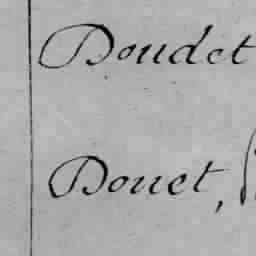 Doudet
Douet,